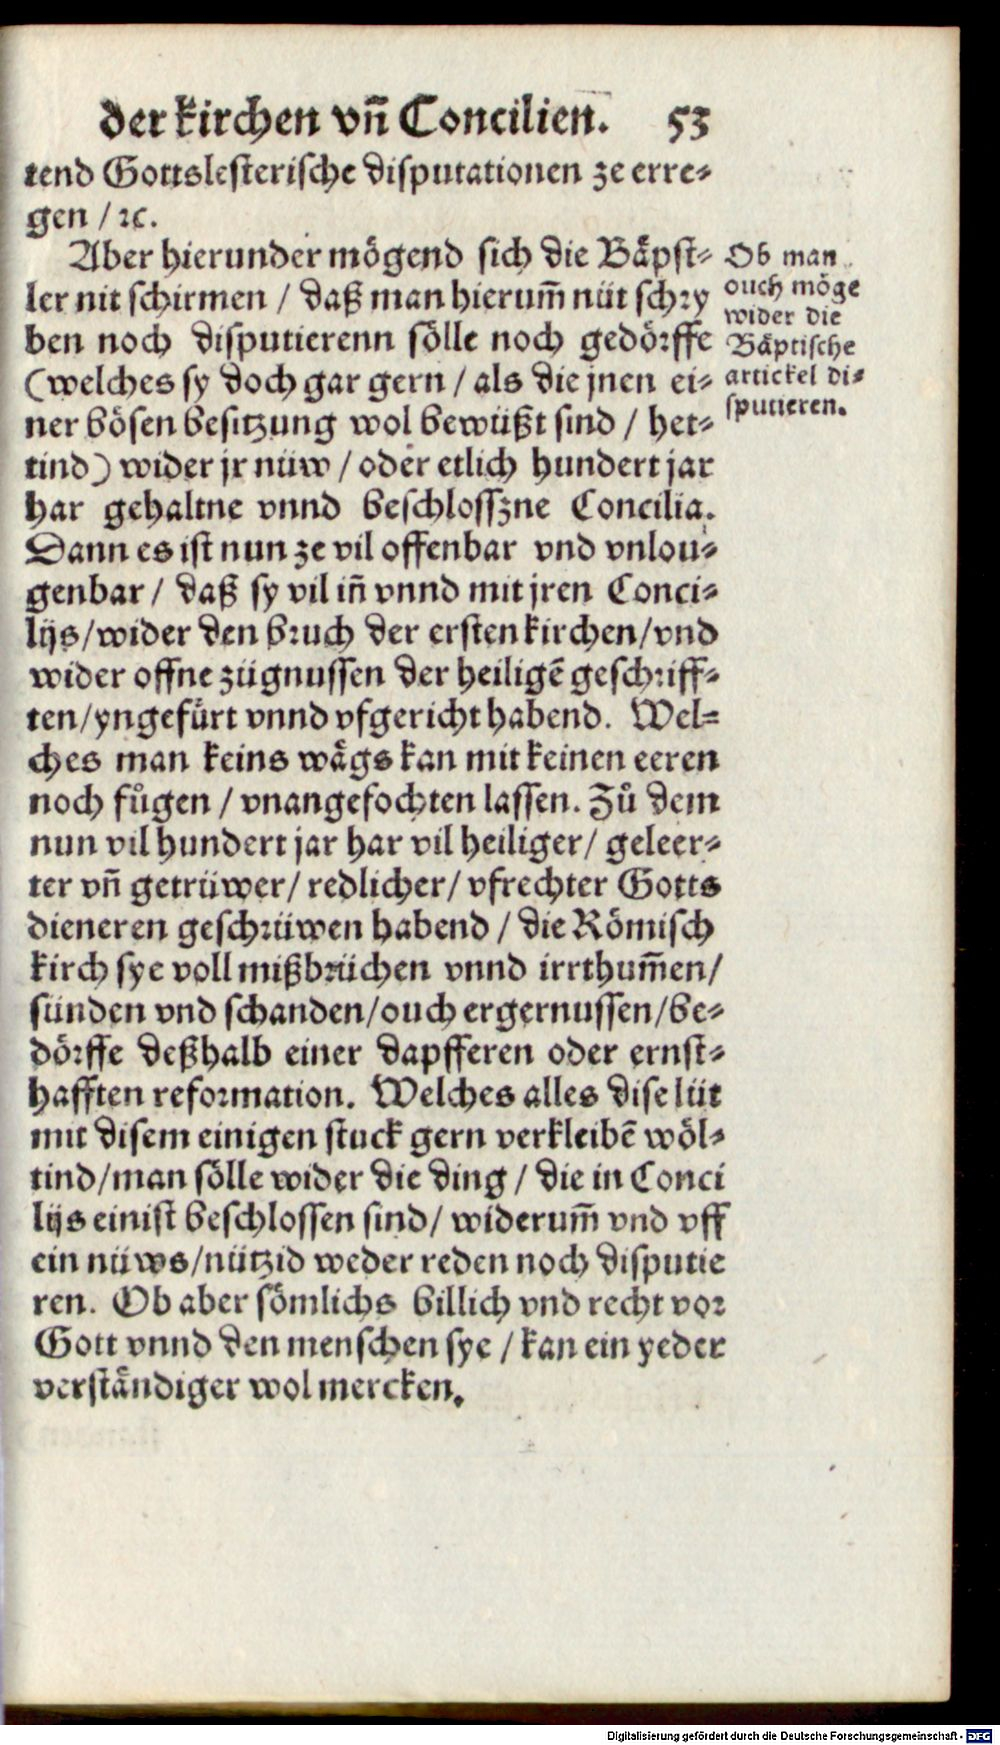 der kirchen vn̄ Concilien. 53
tend Gottslesterische disputationen ze erre⸗
gen / ꝛc.
Aber hierunder mögend sich die Bäpst⸗
ler nit schirmen / daß man hierum̄ nüt schry
ben noch disputierenn sölle noch gedörffe
(welches sy doch gar gern / als die jnen ei⸗
ner bösen besitzung wol bewüßt sind / het⸗
tind) wider jr nüw / oder etlich hundert jar
har gehaltne vnnd beschlosszne Concilia.
Dann es ist nun ze vil offenbar vnd vnlou⸗
genbar / daß sy vil in̄ vnnd mit jren Conci⸗
lijs/wider den bruch der ersten kirchen/vnd
wider offne zügnussen der heiligē geschriff⸗
ten/yngefürt vnnd vfgericht habend. Wel⸗
ches man keins wägs kan mit keinen eeren
noch fůgen / vnangefochten lassen. Zů dem
nun vil hundert jar har vil heiliger/ geleer⸗
ter vn̄ getrüwer/ redlicher/ vfrechter Gotts
dieneren geschrüwen habend / die Römisch
kirch sye voll mißbrüchen vnnd irrthum̄en/
sünden vnd schanden/ouch ergernussen/be⸗
dörffe deßhalb einer dapfferen oder ernst⸗
hafften reformation. Welches alles dise lüt
mit disem einigen stuck gern verkleibē wöl⸗
tind/man sölle wider die ding / die in Conci
lijs einist beschlossen sind/ widerum̄ vnd vff
ein nüws/nützid weder reden noch disputie
ren. Ob aber sömlichs billich vnd recht vor
Gott vnnd den menschen sye / kan ein yeder
verständiger wol mercken.
Ob man
ouch möge
wider die
Bäptische
artickel di⸗
sputieren.
Digitalisierung gefördert durch die Deutsche Forschungsgemeinschaft - DFG